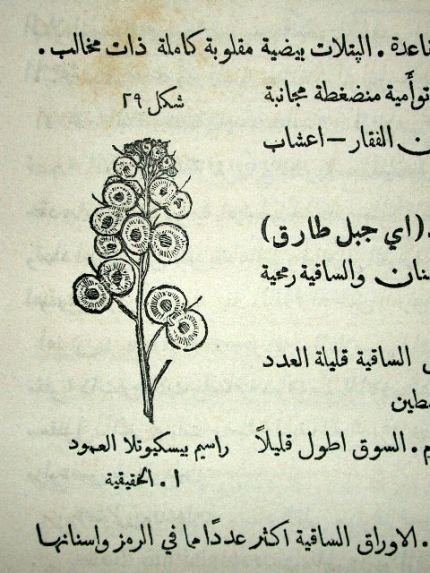 قاعدة . البتلات بيضية مقلوبة كاملة ذات مخالب .
توأمية منضغطة مجانبة
شكل ٢٩
ن الفقار – اعشاب
(اي جبل طارق)
سنان والساقية رمحية
الساقية قليلة العدد
م . السوق اطول قليلاً
راسيم بيسكيوتلا العمود
١ . الحقيقية
. الاوراق الساقية اكثر عددًا مما في الرمز واسنانها